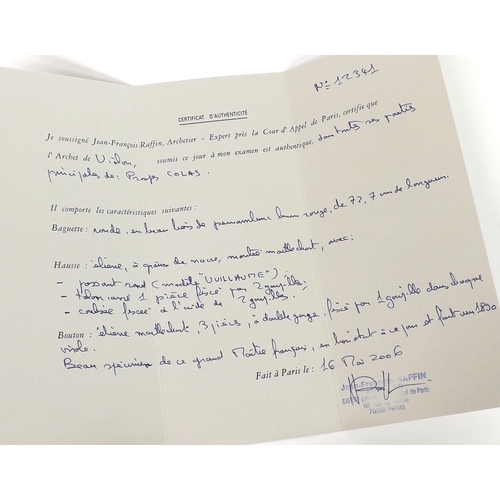 No 12341
CERTIFICAT D'AUTHENTICITÉ
Je soussigné Jean-François Raffin, Archetier - Expert près la Cour d'Appel de Paris, certifie que
l'Archet de Violon, soumis ce jour à mon examen est authentique, dans toutes ses parties
principales de: Prosper COLAS.
Il comporte les caractéristiques suivantes :
Baguette : ronde, en beau bois de pernambouc brun rouge, de 72,7 cm de longueur.
Hausse : ébène, à grains de nacre, montée maillechort, avec:
- passant rond (modèle "VUILLAUME");
- talon ramé 1 pièce fixé par 2 goupilles;
- coulisse fixée à l'aide de 2 goupilles.
Bouton : ébène maillechort, 3 pièces, à double gorge, fixé par 1 goupille dans chaque
virole.
Beau spécimen de ce grand Maître français, en bon état à ce jour et fait vers 1890
Fait à Paris le : 16 Mai 2006
Jean-François RAFFIN
EXPERT de Paris
75009 PARIS